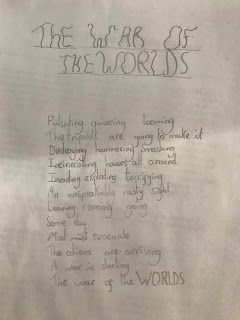 THE WAR OF
THE WORLDS
Pulsating quivering looming
The tripods are going to make it
Destroying hammering smashing
Incinerating houses all around
Invading exposing terrifying
An unspeakably nasty sight
Leaving coming going
Some day
Most must evacuate
The aliens are arriving
A war is starting
The war of the WORLDS